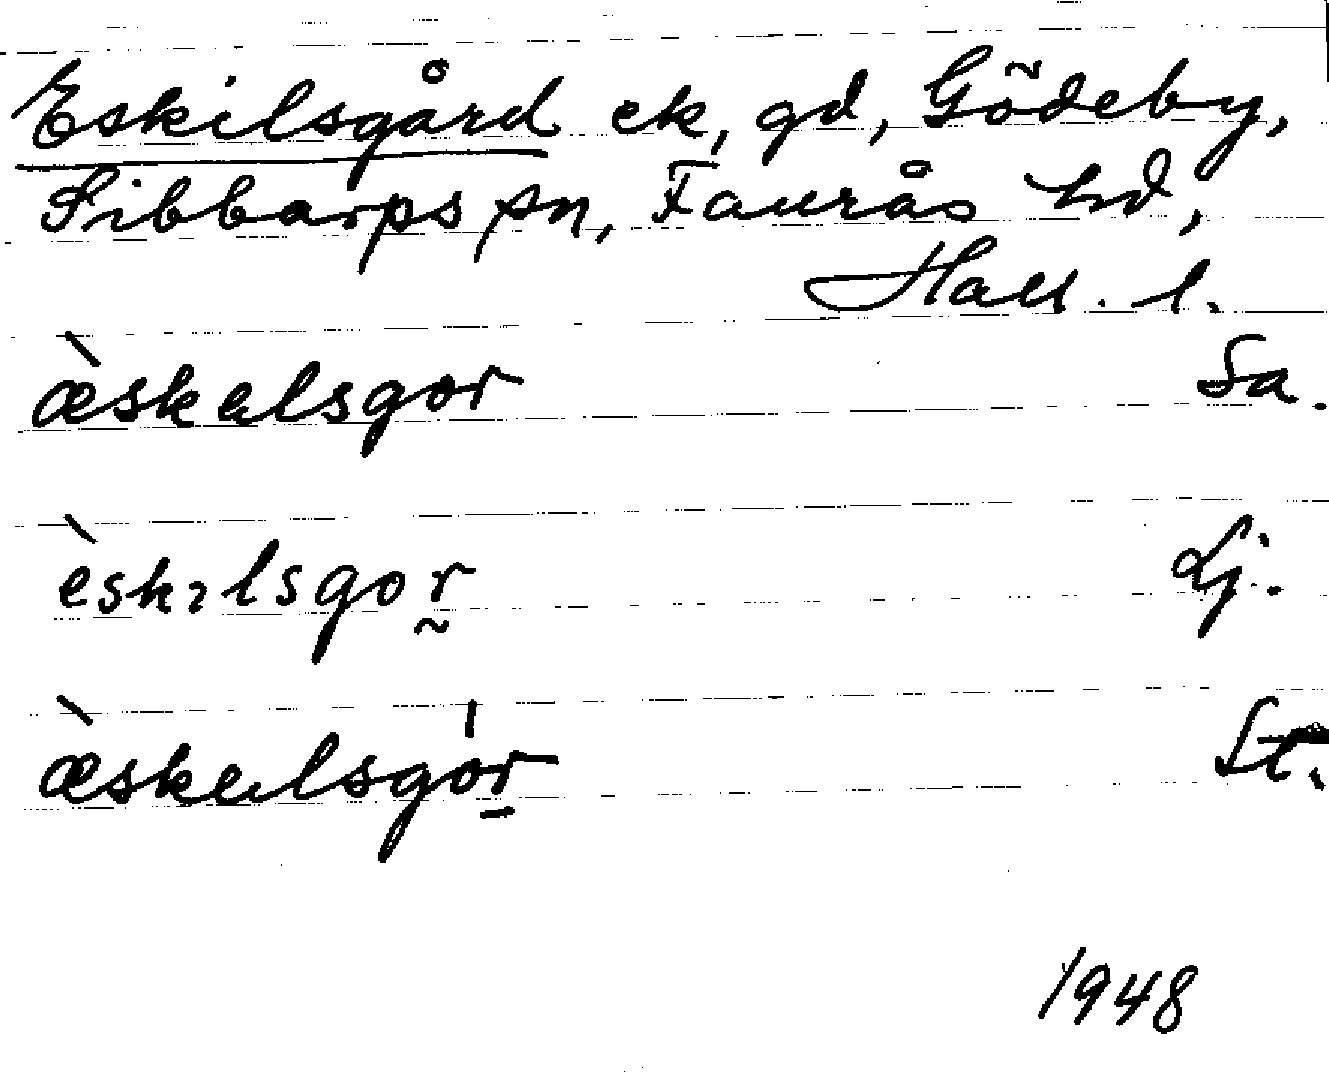 Eskilsgård ek, gd, Gödeby,
Sibbarps sn, Faurås hd,
Hall. l.
æ̀skəlsgor Sa.
èskɩlsgor̰ Lj.
æ̀skəlsgo̍r̠ St.
1948